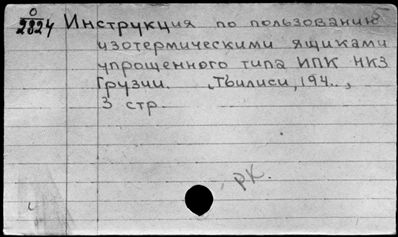 0
2824 Инструкция по пользованию
изотермическими ящиками
упрощенного типа ИПК НКЗ
Грузии. Тбилиси, 194..,
3 стр.
РК.